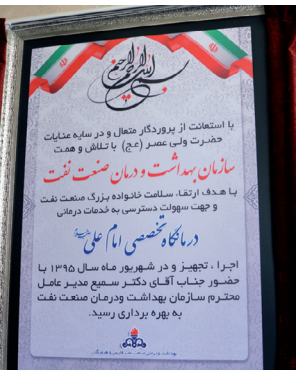 بسم الله الرحمن الرحیم
با استعانت از پروردگار متعال و در سایه عنایات
حضرت ولی عصر (عج) با تلاش و همت
سازمان بهداشت و درمان صنعت نفت
با هدف ارتقاء سلامت خانواده بزرگ صنعت نفت
و جهت سهولت دسترسی به خدمات درمانی
درمانگاه تخصصی امام علی
اجرا ، تجهیز و در شهریور ماه سال ۱۳۹۵ با
حضور جناب آقای دکتر سمیع مدیر عامل
محترم سازمان بهداشت ودرمان صنعت نفت
به بهره برداری رسید.
بهداشت و درمان صنعت نفت فارس و هرمزگان